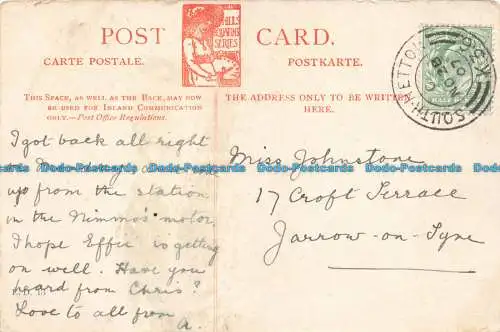 POST CARD.
CARTE POSTALE. POSTKARTE.
HILLS
SERIES
THIS SPACE, AS WELL AS THE BACK, MAY NOW
BE USED FOR INLAND COMMUNICATION
ONLY.—Post Office Regulations.
THE ADDRESS ONLY TO BE WRITTEN
HERE.
SOUTH HETTON
NO 28
07
I got back all right
up from the station
in the Nimmos' motor.
I hope Effie is getting
on well. Have you
heard from Chris?
Love to all from
A.
Miss Johnstone
17 Croft Terrace
Jarrow-on-Tyne
Dodo-Postcards Dodo-Postcards Dodo-Postcards Dodo-Postcards Dodo-Postcards